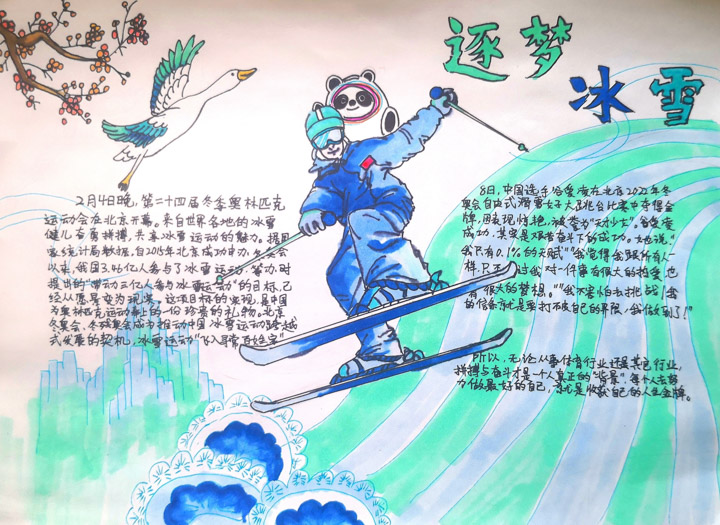 逐梦
冰雪
2月4日晚,第二十四届冬季奥林匹克
运动会在北京开幕。来自世界各地的冰雪
健儿奋勇拼搏,共享冰雪运动的魅力。据国
家统计局数据,自2015年北京成功申办冬奥会
以来,我国3.46亿人参与了冰雪运动,当初时
提出的“带动三亿人参与冰雪运动”的目标,已
经从愿景变为现实。这项目标的实现,是中国
为奥林匹克运动献上的一份珍贵的礼物。北京
冬奥会、冬残奥会成为推动中国冰雪运动跨越
式发展的契机,冰雪运动“飞入寻常百姓家”
8日,中国选手谷爱凌在北京2022年冬
奥会自由式滑雪女子大跳台比赛中夺得金
牌,因表现惊艳,被誉为“天才少女”。谷爱凌
成功,其实是艰苦奋斗下的成功。她说:“
我只有0.1%的天赋”“我觉得我跟所有人一
样,只不过我对一件事有很大的热爱,也
有很大的梦想。”“我不害怕去挑战,我
的信条就是要打破自己的界限,我做到了!”
所以,无论从事体育行业还是其它行业,
拼搏与奋斗才是一个人真正的“背景”,每个人去努
力做最好的自己,亦就是收获自己的人生金牌。